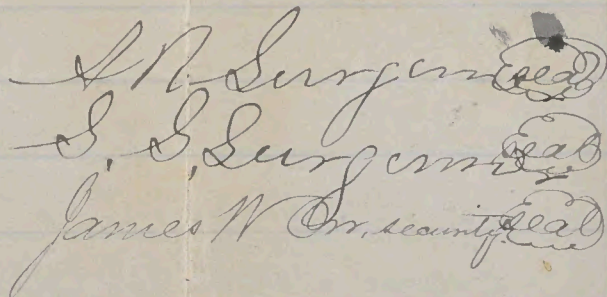 S N. Surgener seal
S. S, Surgener seal
James W Orr, security seal